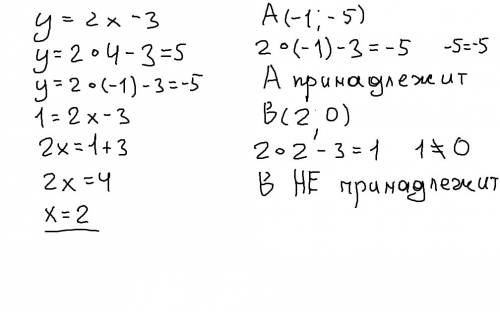 y = 2x - 3
y = 2∘4 - 3 = 5
y = 2∘(-1) - 3 = -5
1 = 2x - 3
2x = 1 + 3
2x = 4
x = 2
A (-1; -5)
2∘(-1) - 3 = -5 -5 = -5
A принадлежит
B (2; 0)
2∘2 - 3 = 1 1 ≠ 0
B НЕ принадлежит